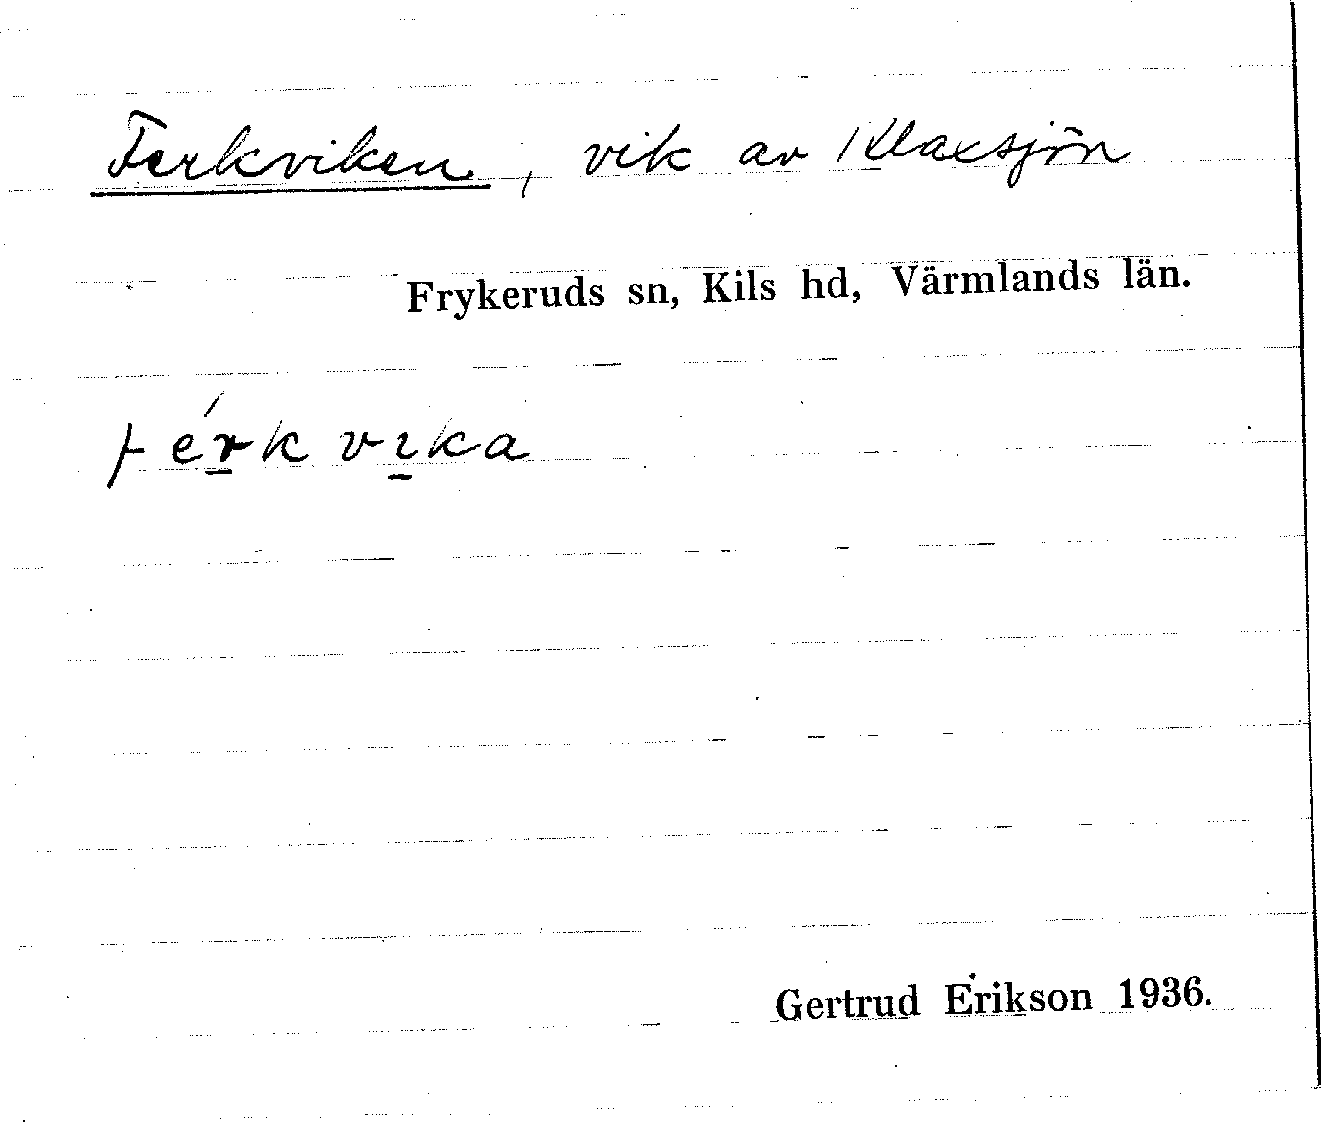 Ferkviken, vik av Klaxsjön
Frykeruds sn, Kils hd, Värmlands län.
férkvika
Gertrud Erikson 1936.